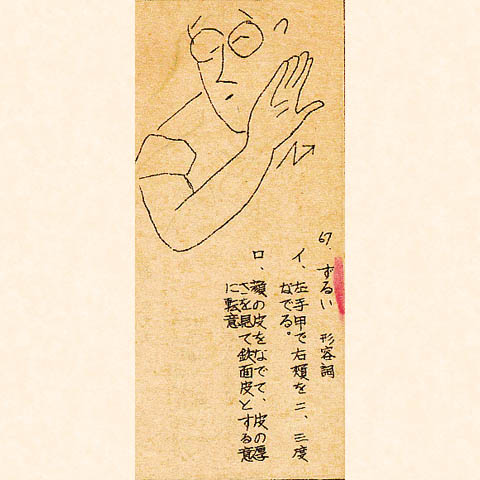 67. ずるい 形容詞
イ、左手甲で右頬を二、三度
なでる。
ロ、顔の皮をなでて、皮の厚
さを見て鉄面皮とする意
に転意